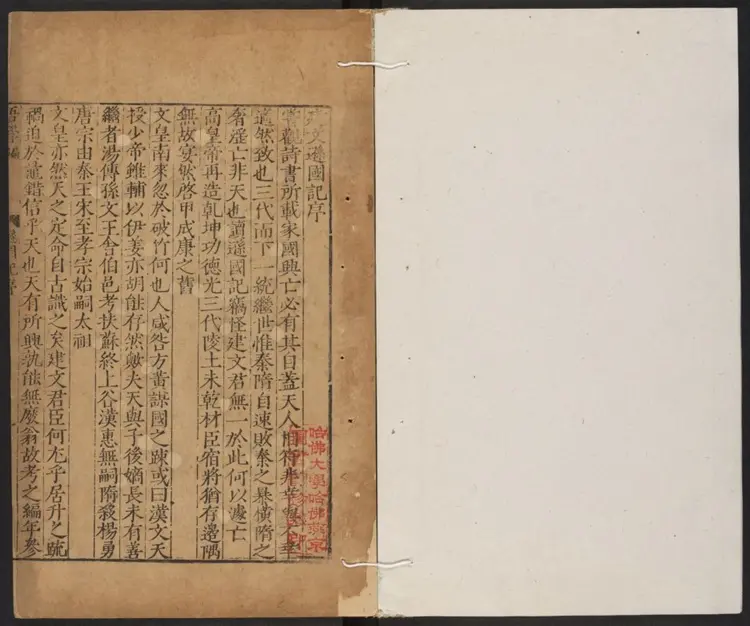 文遜國記序
嘗觀詩書所載家國興亡必有其日蓋天人相
適然致也三代而下一統繼世惟秦隋自速敗秦之暴橫隋之
奢淫亡非天也讀遜國記竊怪建文君無一於此何以遽亡
高皇帝再造乾坤功德光三代陵土未乾材臣宿將猶存邊隅
無故宴然啓甲成康之舊
文皇南來忽於破竹何也人咸咎方黃謀國之踈或曰漢文天
授少帝雖輔以伊姜亦胡能存然歟夫天與子後嫡長未有善
繼者湯傳孫文王舍伯邑考扶蘇終上谷漢惠無嗣隋殺楊勇
唐宗由秦王宋至孝宗始嗣太祖
文皇亦然天之定命自古識之矣建文君臣何尤乎居升之䟽
禍迫於鼂錯信乎天也天有所興孰能無廢翁故考之編年參
哈佛大學哈佛燕京